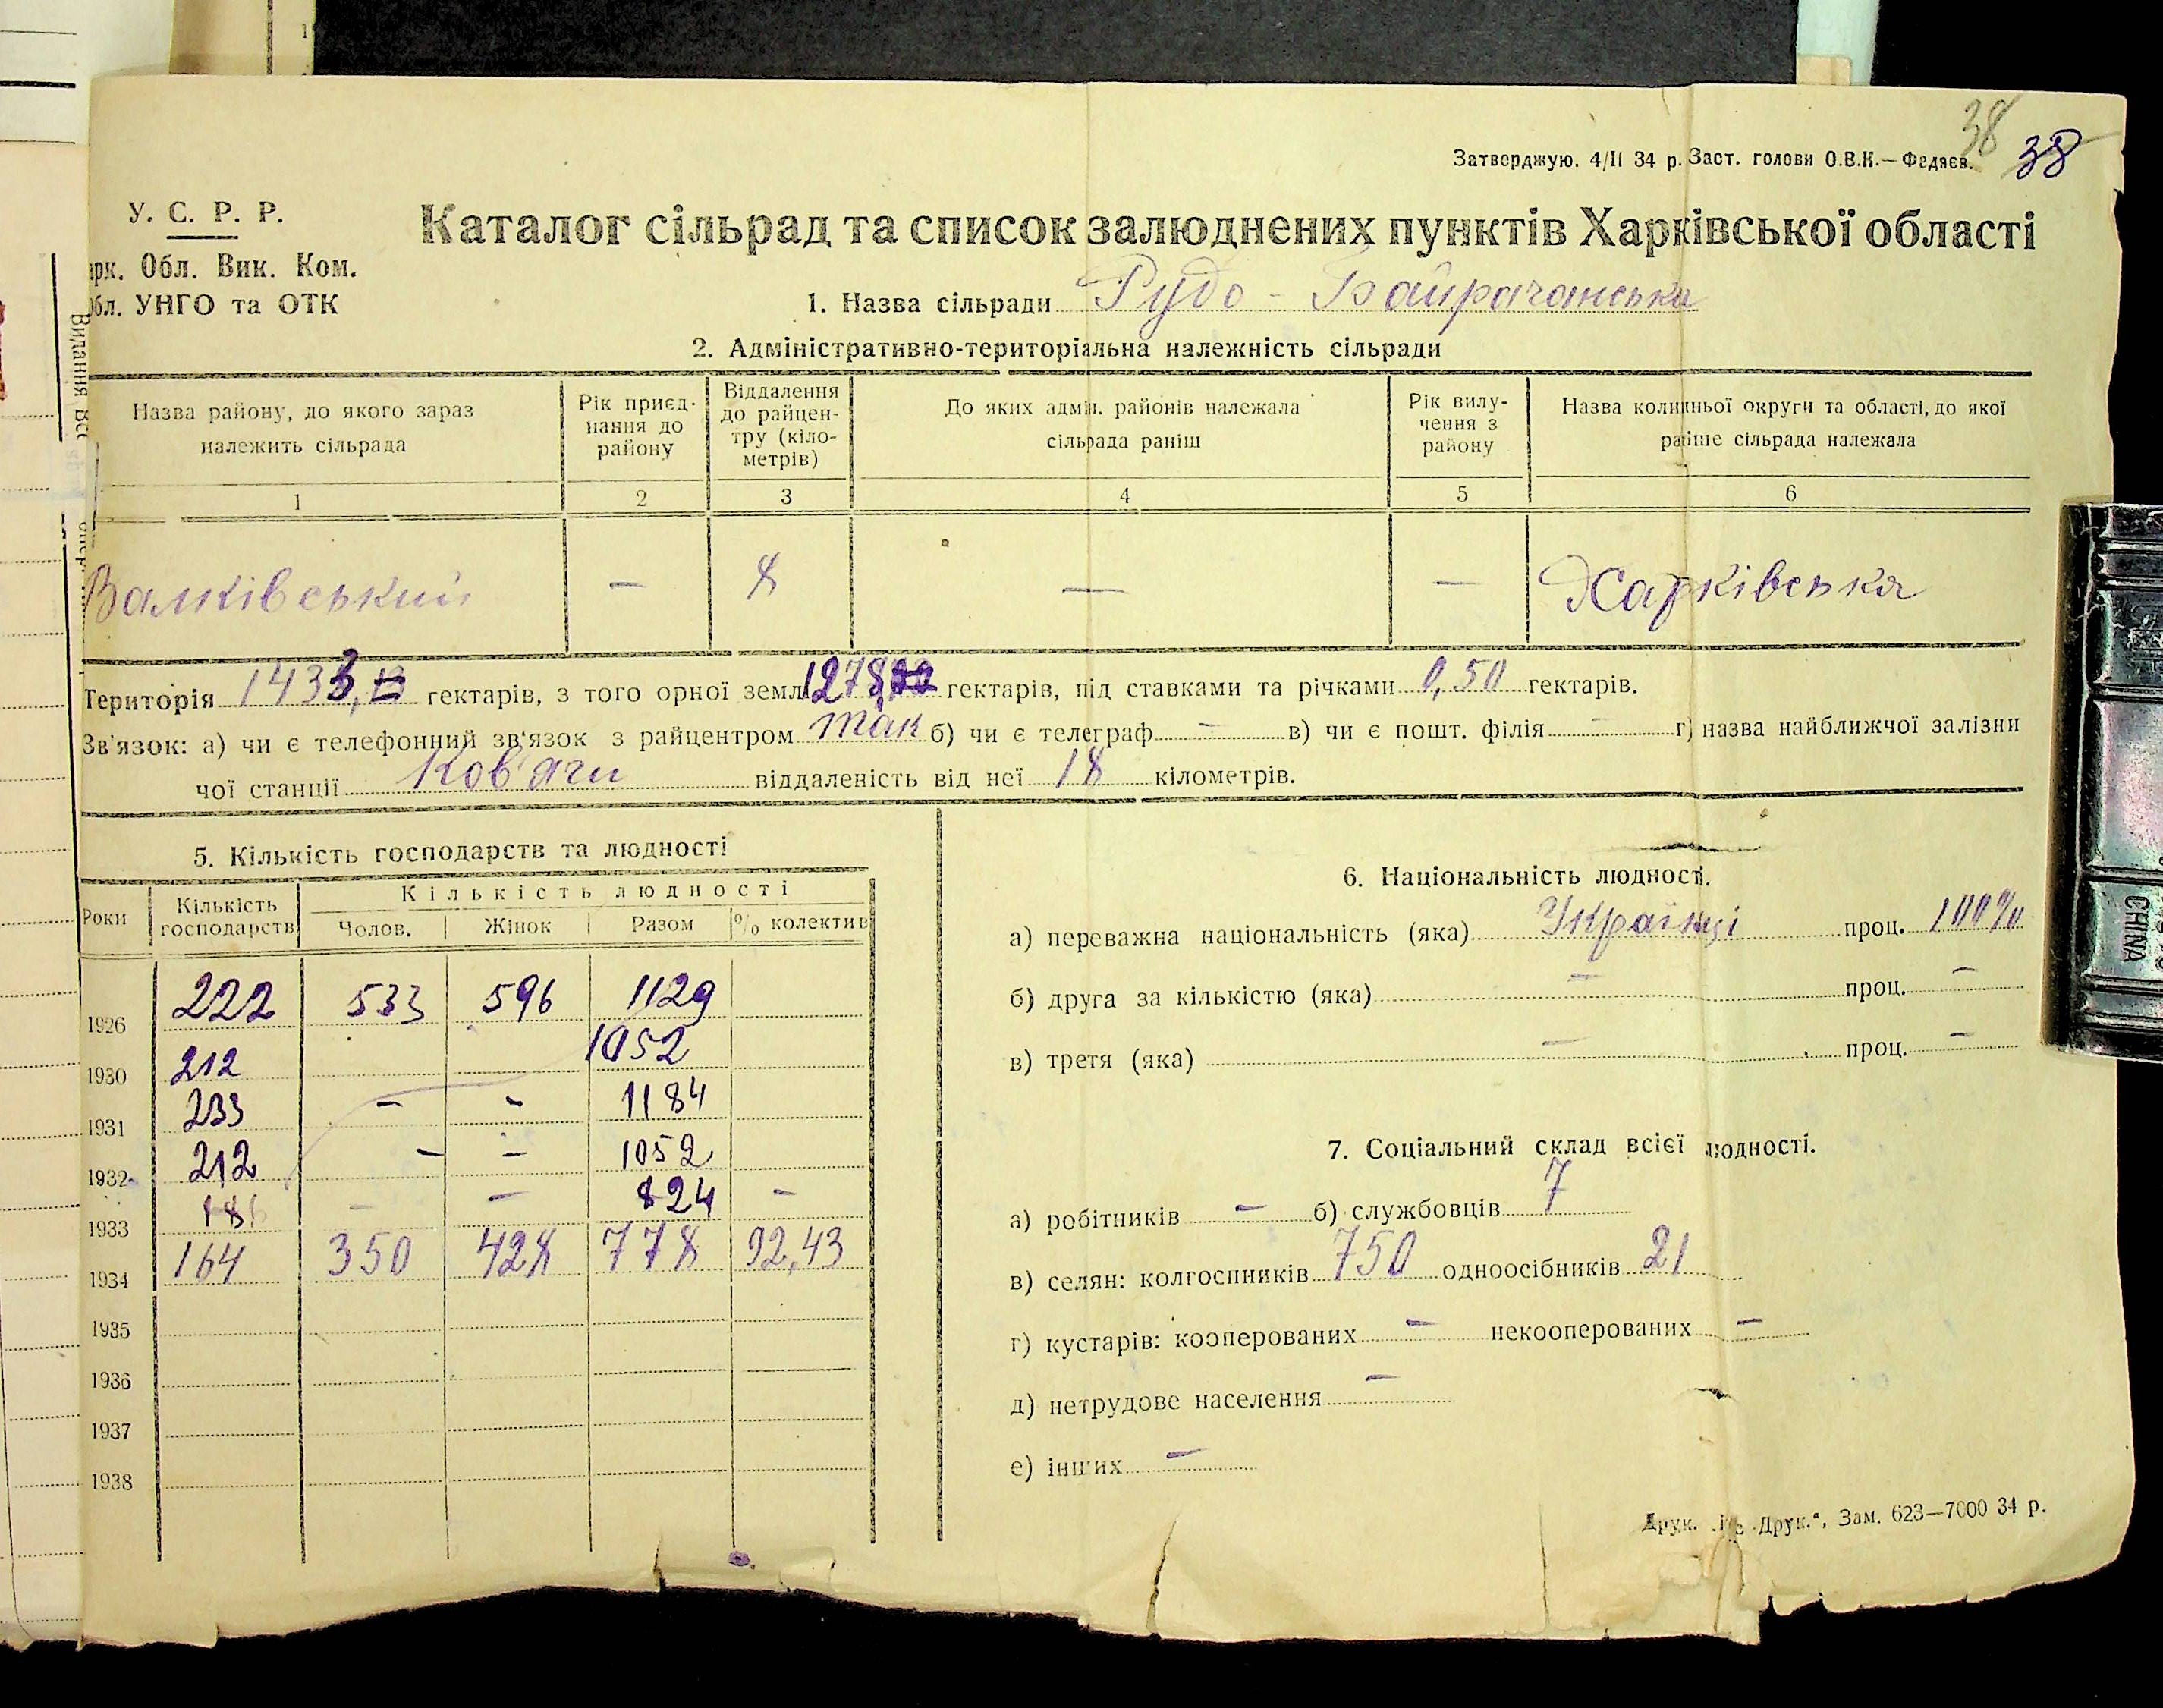 38
Затверджую. 4/II 34 р. Заст. голови О.В.К.—Федяєв. 38
У. С. Р. Р.
Каталог сільрад та список залюднених пунктів Харківської області
арк. Обл. Вик. Ком.
Обл. УНГО та ОТК
1. Назва сільради Рудо-Байрачанська
2. Адміністративно-територіальна належність сільради
Назва району, до якого зараз належить сільрада
Рік приєднання до району
Віддалення до райцентру (кілометрів)
До яких адмін. районів належала сільрада раніш
Рік вилучення з району
Назва колишньої округи та області, до якої раніше сільрада належала
1 2 3 4 5 6
Валківський — 8 — — Харківська
Територія 1433, гектарів, з того орної землі 1278, гектарів, під ставками та річками 0,50 гектарів.
Зв'язок: а) чи є телефонний зв'язок з райцентром так б) чи є телеграф — в) чи є пошт. філія — г) назва найближчої залізни
чої станції Ков'яги віддаленість від неї 18 кілометрів.
5. Кількість господарств та людності
Роки Кількість господарств Кількість людності
Чолов. Жінок Разом % колектив
1926 222 533 596 1129
1930 212 1052
1931 233 - - 1184
1932 212 - - 1052
1933 - - 824 -
1934 164 350 428 778 92,43
1935
1936
1937
1938
6. Національність людності.
а) переважна національність (яка) Українці проц. 100%
б) друга за кількістю (яка) — проц. —
в) третя (яка) — проц. —
7. Соціальний склад всієї людності.
а) робітників — б) службовців 7
в) селян: колгоспників 750 одноосібників 21
г) кустарів: кооперованих — некооперованих —
д) нетрудове населення —
е) інших —
Друк. Друк.", Зам. 623—7000 34 р.
Видання
CHINA